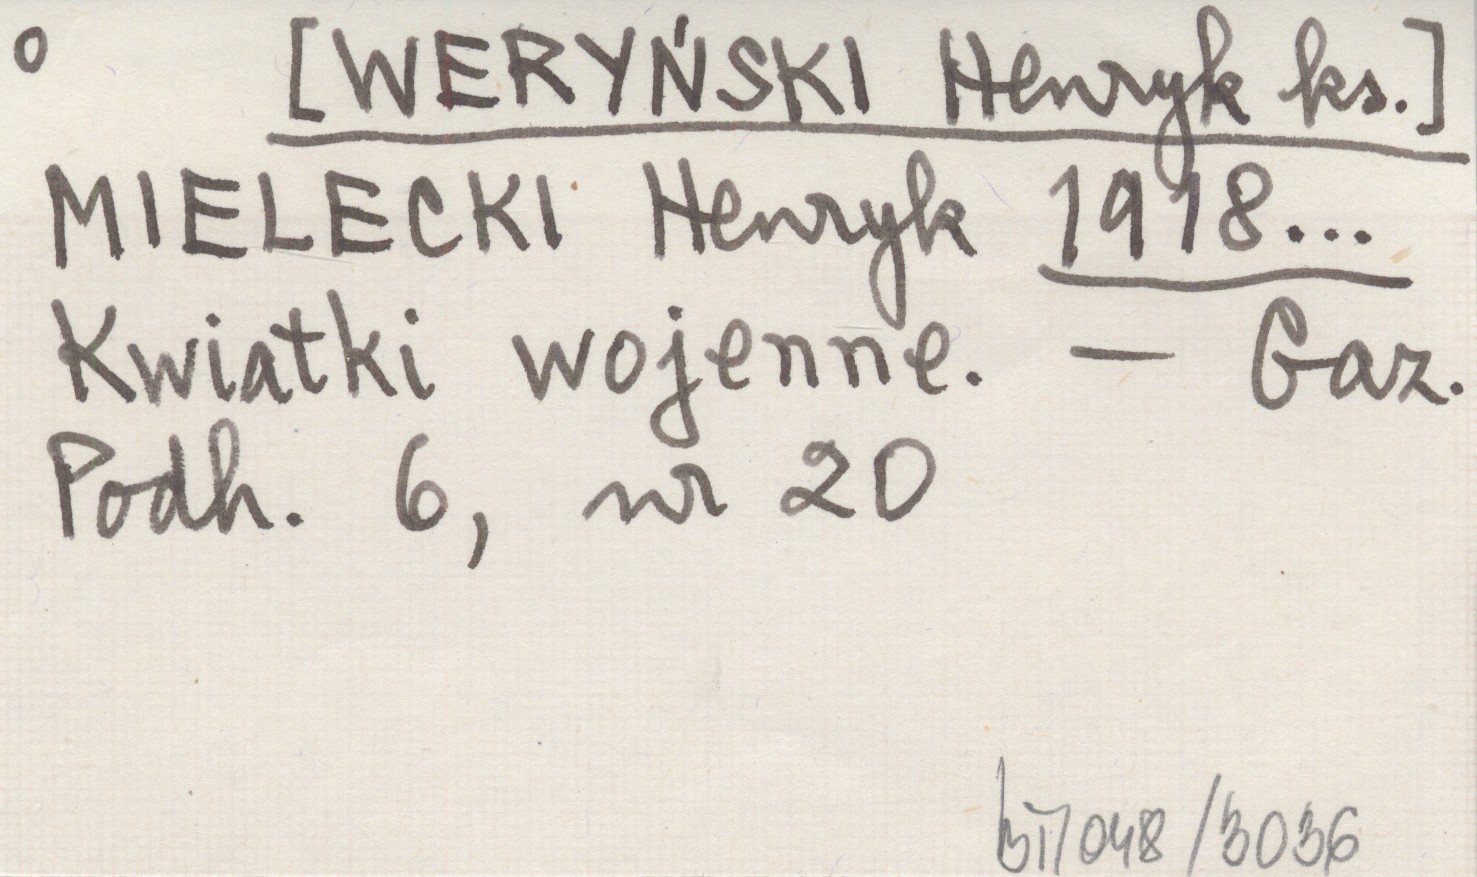 o [WERYŃSKI Henryk ks.]
MIELECKI Henryk 1918...
Kwiatki wojenne. — Gaz.
Podh. 6, nr 20
/048/3036